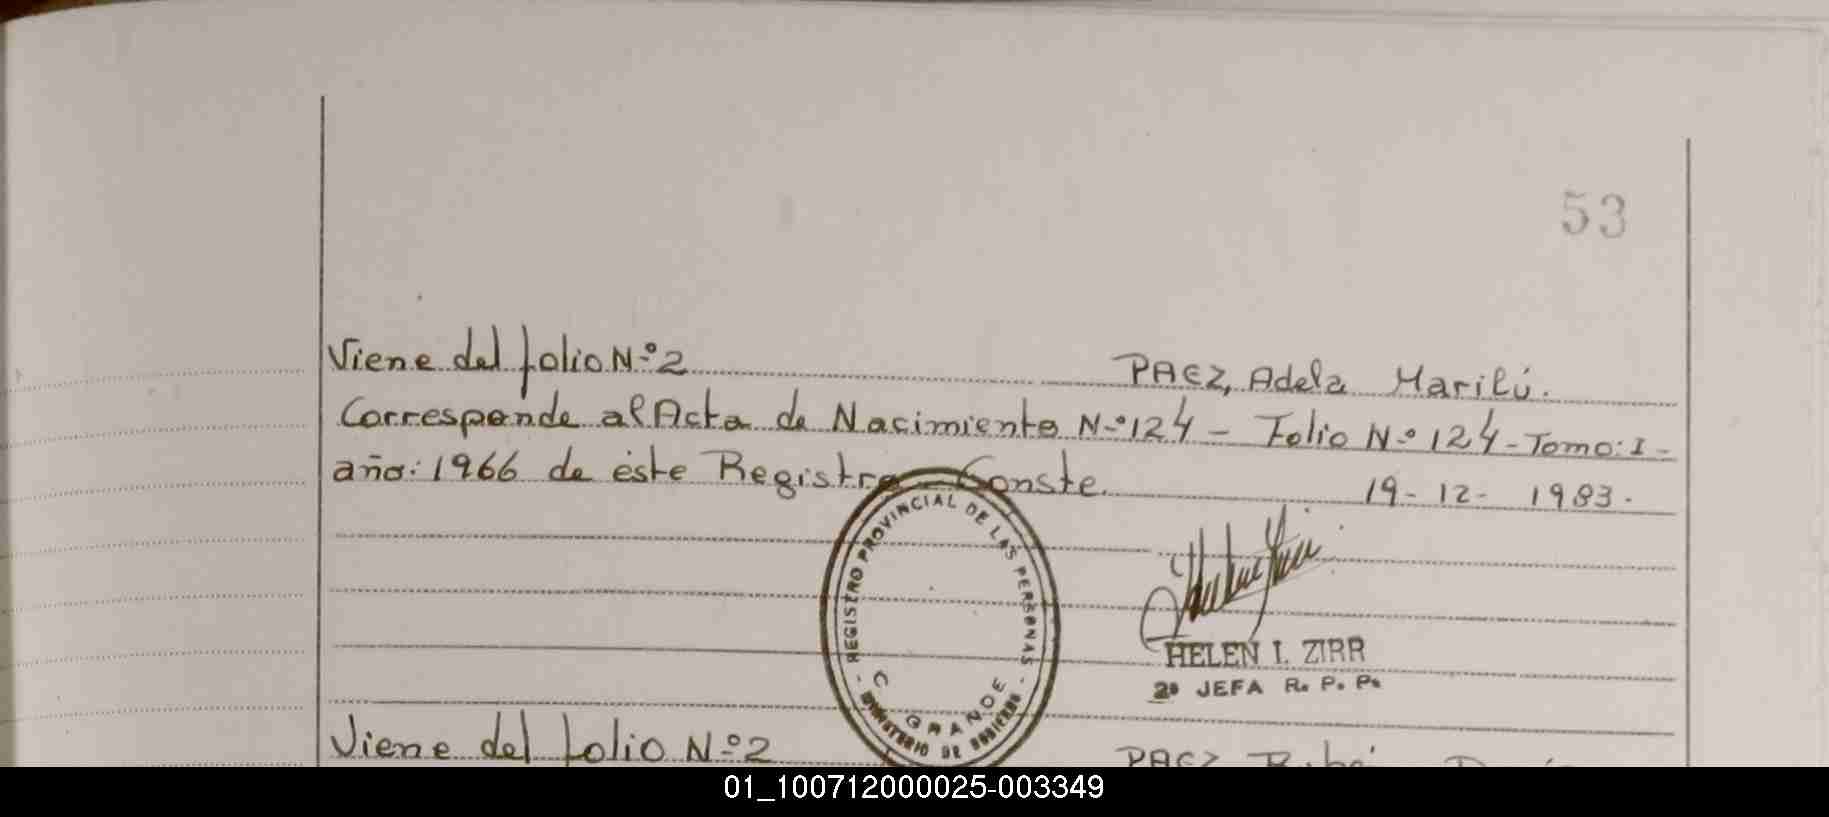 53
Viene del folio N.º 2 PAEZ, Adela Marilú.
Corresponde al Acta de Nacimiento N.º 124 - Folio N.º 124 - Tomo: I -
año: 1966 de éste Registro - Conste. 19 - 12 - 1983.
REGISTRO PROVINCIAL DE LAS PERSONAS
C GRANDE
MINISTERIO DE GOBIERNO
HELEN I. ZIRR
2ª JEFA R. P. P.
Viene del folio N.º 2 PAEZ
01_100712000025-003349